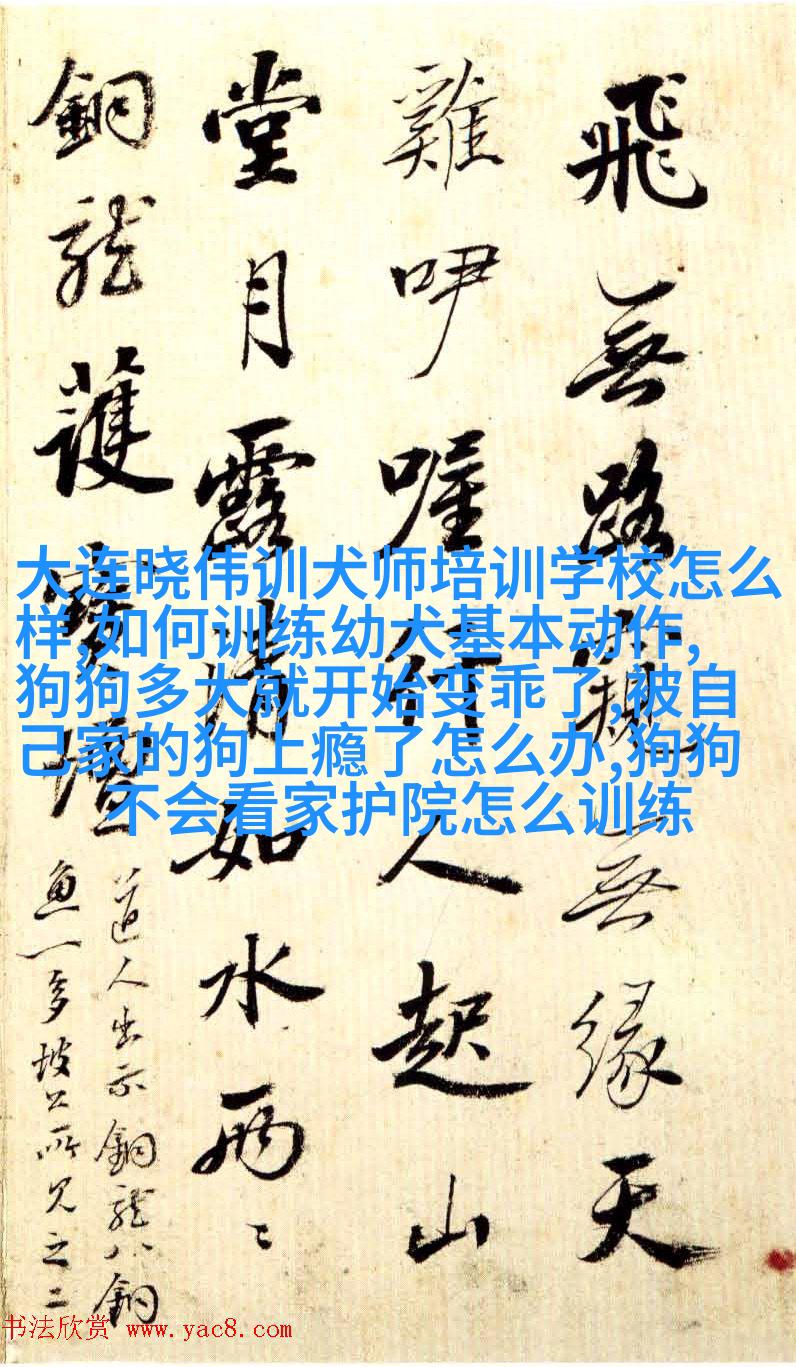 飛無路無緣天
雞咿喔行人起山
堂月露清如水兩〻
銅龍護壇
道人出示銅龍八銅
魚一多坡公所見之二
大连晓伟训犬师培训学校怎么
样,如何训练幼犬基本动作,
狗狗多大就开始变乖了,被自
己家的狗上瘾了怎么办,狗狗
不会看家护院怎么训练
书法欣赏 www.yac8.com